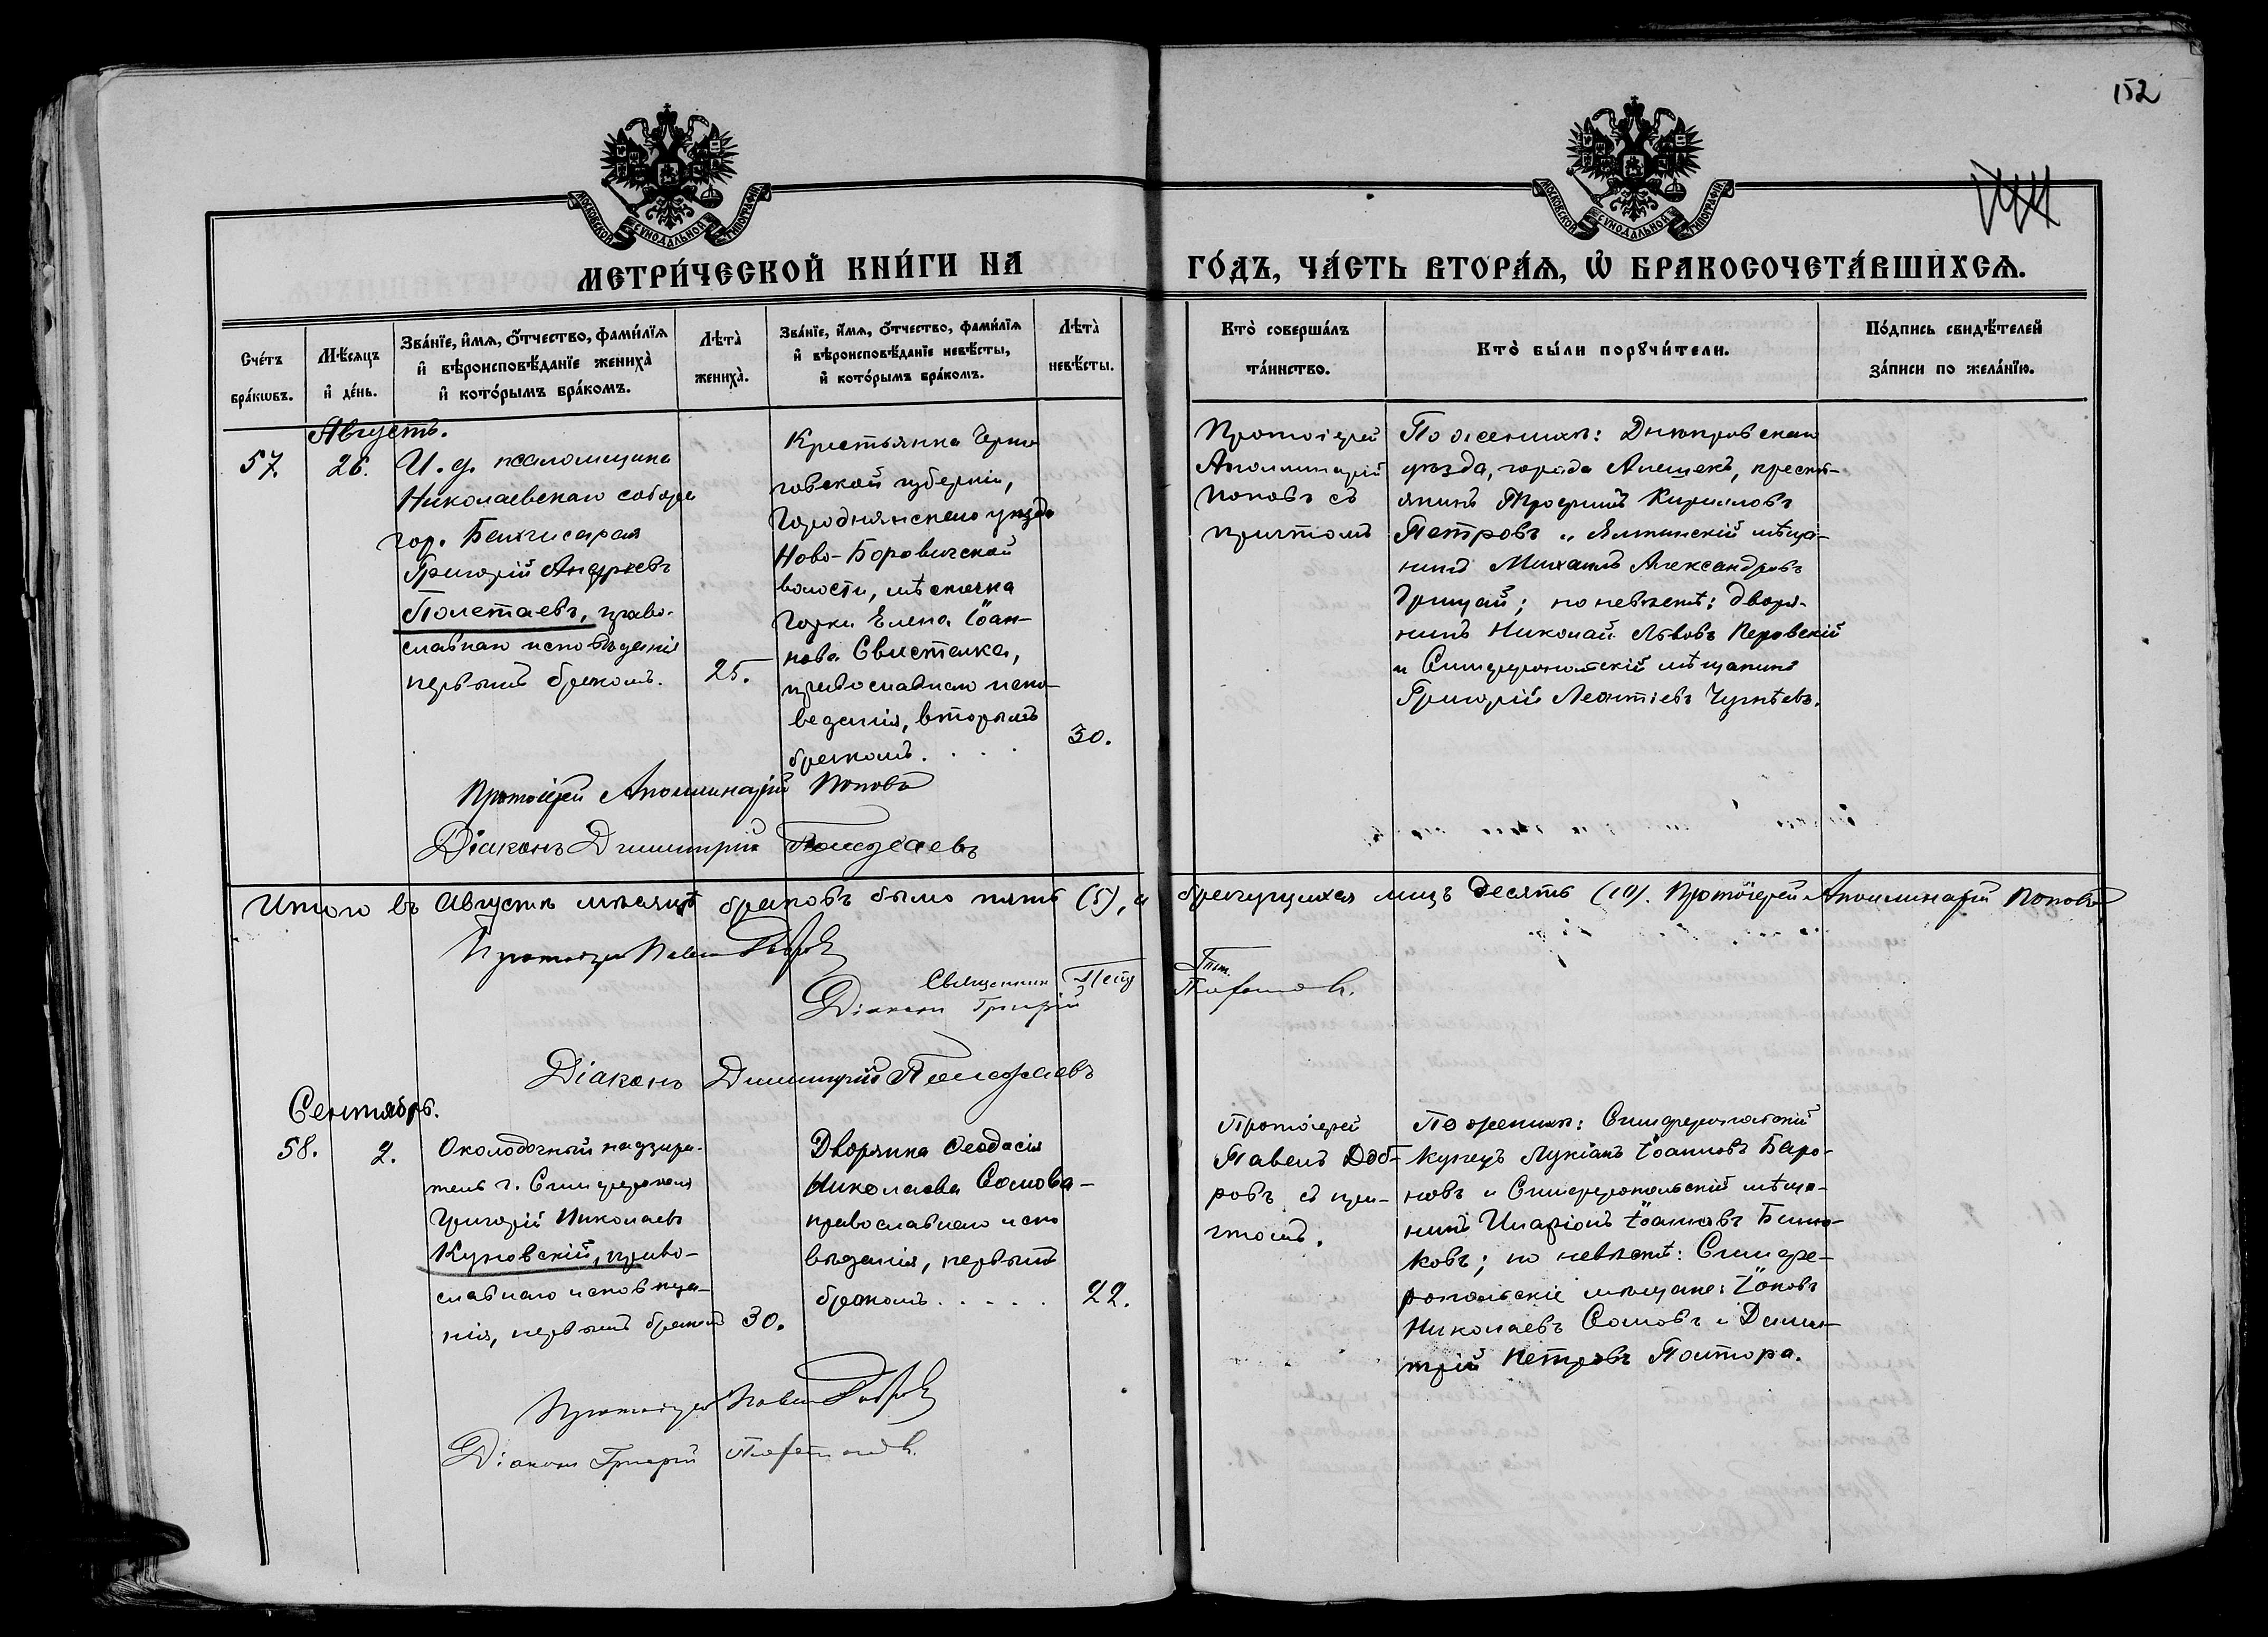 152
МОСКОВСКОЙ СѴНОДАЛЬНОЙ ТИПОГРАФІИ
МОСКОВСКОЙ СѴНОДАЛЬНОЙ ТИПОГРАФІИ
МЕТРИ́ЧЕСКОЙ КНИ́ГИ НА ГО́ДЪ, ЧА́СТЬ ВТОРА́Ѧ, Ѡ҆ БРАКОСОЧЕТА́ВШИХСѦ.
Сче́тъ бра́кѡвъ.
Мѣ́сяцъ и҆ де́нь.
Зва́нїе, и҆́мѧ, ѻ҆́тчество, фами́лїѧ и҆ вѣроисповѣ́данїе жениха̀ и҆ кото́рымъ бра́комъ.
Лѣта̀ жениха̀.
Зва́нїе, и҆́мѧ, ѻ҆́тчество, фами́лїѧ и҆ вѣроисповѣ́данїе невѣ́сты, и҆ кото́рымъ бра́комъ.
Лѣта̀ невѣ́сты.
Кто̀ соверша́лъ та́инство.
Кто̀ бы́ли порꙋчи́тели.
По́дпись свидѣ́телей за́писи по жела́нїю.
Августъ.
57.
26.
И. д. псаломщика
Николаевскаго собора
гор. Бахчисарая
Григорій Андреевъ
Полетаевъ, право-
славнаго исповѣданія
первымъ бракомъ.
25.
Крестьянка Черни
говской губерніи,
Городнянскаго уѣзда
Ново-Боровичской
волости, мѣстечка
Горки Елена Іоан-
нова Свисталка,
православнаго испо-
веданія, вторымъ
бракомъ. . . .
30.
Протоіерей
Аполлинарій
Поповъ съ
причтомъ
По женихѣ: Днѣпровскаго
уѣзда, города Алешекъ, кресть-
янинъ Трофимъ Кирилловъ
Петровъ и Ялтинскій мѣща-
нинъ Михаилъ Александровъ
Грицай; по невѣстѣ: дворя-
нинъ Николай Львовъ Перовскій
и Симферопольскій мѣщанинъ
Григорій Леонтіевъ
Протоіерей Аполлинарій Поповъ
Діаконъ Димитрій Полетаевъ
Итого въ Августѣ мѣсяцѣ браковъ было пять (5), а брачущихся лицъ десять (10). Протоіерей Аполлинарій Поповъ
Протоіерей Павелъ Добровъ
Священникъ Петръ
Діаконъ Григорій
Діаконъ Димитрій Полетаевъ
Сентябрь.
58.
2.
Околодочный надзира-
тель г. Симферополя
Григорій Николаевъ
Куновскій, право-
славнаго исповѣда-
нія, первымъ бракомъ
30.
Дворянка Ѳеодосія
Николаева Сомова-
православнаго испо
вѣданія, первымъ
бракомъ. . . . .
22.
Протоіерей
Павелъ Доб-
ровъ съ при-
чтомъ.
По женихѣ: Симферопольскій
купецъ Лукіанъ Іоанновъ Баро-
новъ и Симферопольскій мѣща-
нинъ Иларіонъ Іоанновъ
ковъ; по невѣстѣ: Симфе-
ропольскіе мѣщане: Іаковъ
Николаевъ Сомовъ и Дими-
трій Петровъ Полтора.
Протоіерей Павелъ Добровъ
Діаконъ Григорій